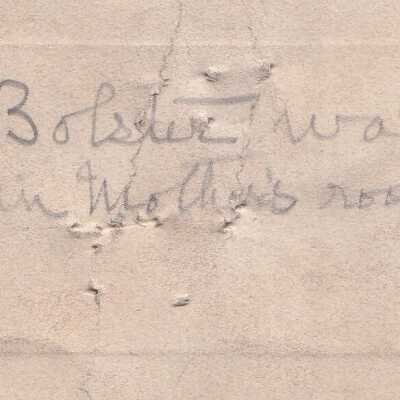 Bolster wa
in Mother's roo